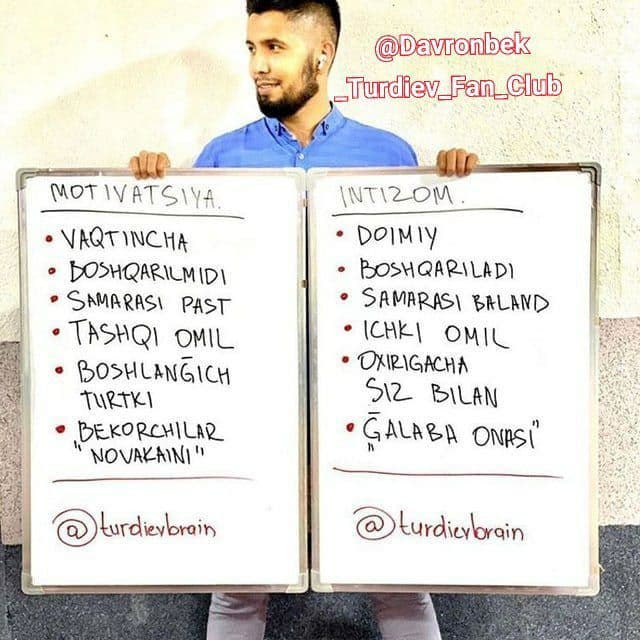 @Davronbek
_Turdiev_Fan_Club
MOTIVATSIYA.
• VAQTINCHA
• BOSHQARILMIDI
• SAMARASI PAST
• TASHQI OMIL
• BOSHLANG̅ICH
TURTKI
• BEKORCHILAR
"NOVAKAINI"
@turdievbrain
INTIZOM.
• DOIMIY
• BOSHQARILADI
• SAMARASI BALAND
• ICHKI OMIL
• OXIRIGACHA
SIZ BILAN
• „G̅ALABA ONASI"
@turdievbrain